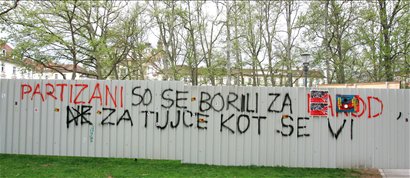 PARTIZANI SO SE BORILI ZA NAROD,
NE ZA TUJCE KOT SE VI